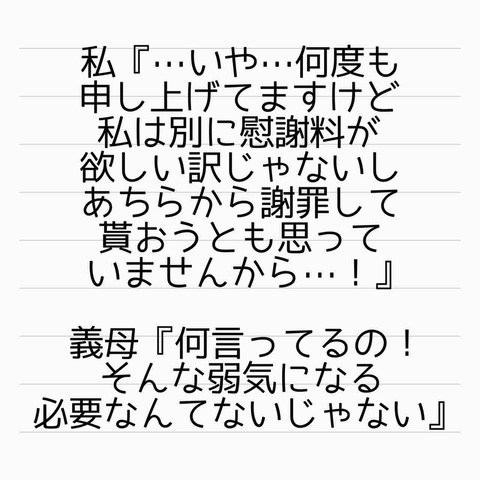 私『…いや…何度も
申し上げてますけど
私は別に慰謝料が
欲しい訳じゃないし
あちらから謝罪して
貰おうとも思って
いませんから…！』
義母『何言ってるの！
そんな弱気になる
必要なんてないじゃない』